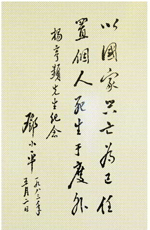 以國家兴亡為己任
置個人死生于度外
楊先生纪念
鄧小平
一九八年
月二日